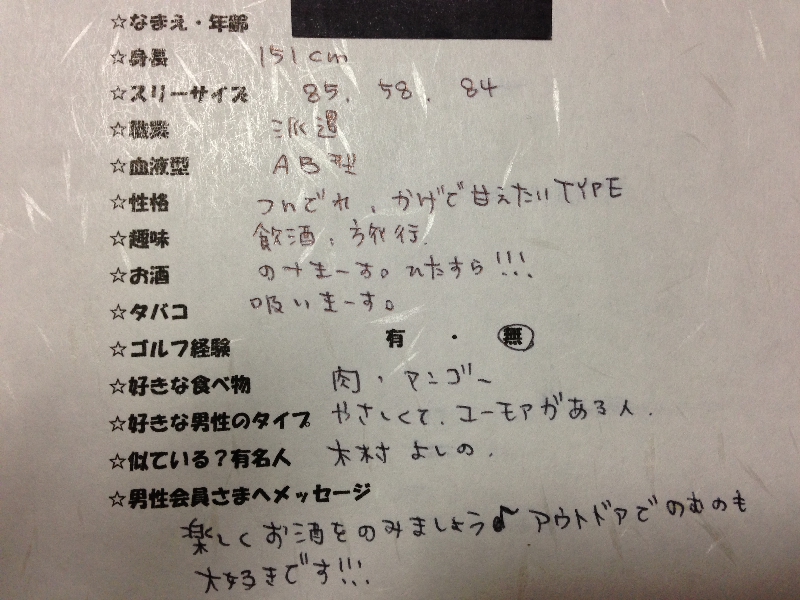 ☆なまえ・年齢
☆身長 151cm
☆スリーサイズ 85. 58. 84
☆職業 派遣
☆血液型 AB型
☆性格 つんでれ、かげで甘えたいTYPE
☆趣味 飲酒、旅行.
☆お酒 のみまーす。ひたすら!!!
☆タバコ 吸いまーす。
☆ゴルフ経験 有 ・ 無
☆好きな食べ物 肉・マンゴー
☆好きな男性のタイプ やさしくて、ユーモアがある人.
☆似ている?有名人 木村よしの.
☆男性会員さまへメッセージ
楽しくお酒をのみましょう♪ アウトドアでのむのも
大好きです!!!